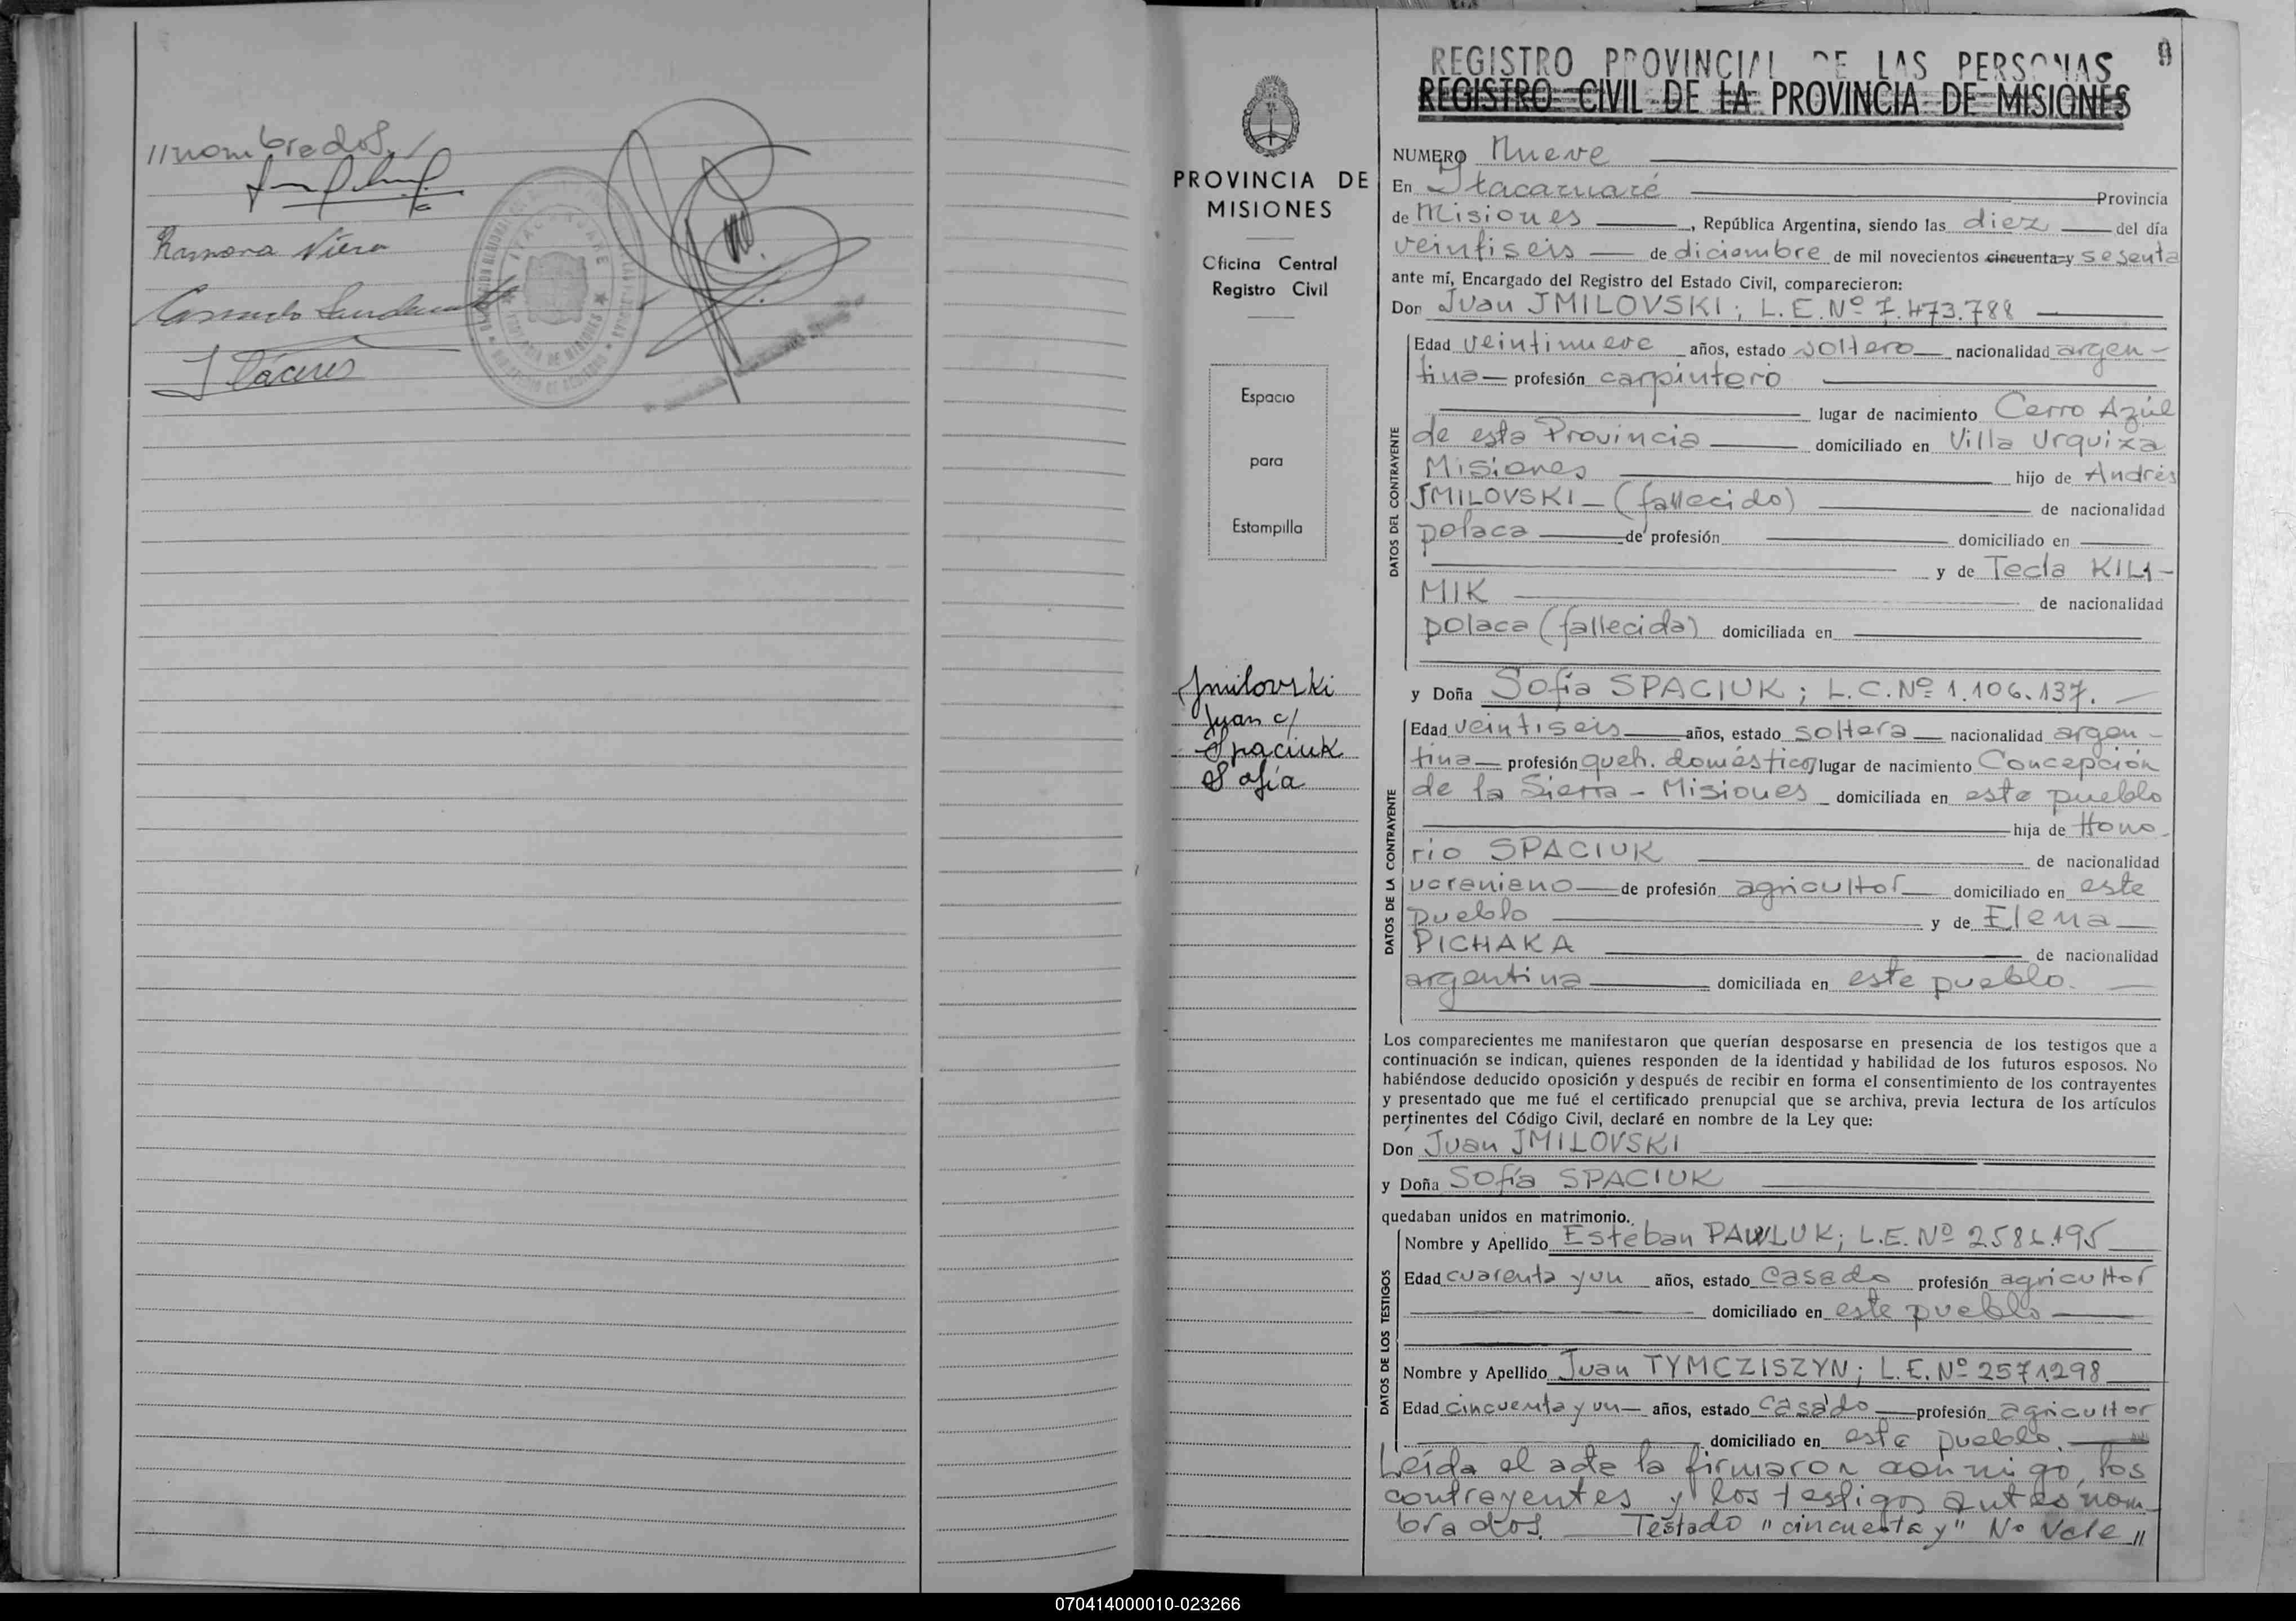 //nombrados
Ramona Viera
J Cáceres
PROVINCIA DE
MISIONES
Oficina Central
Registro Civil
Espacio
para
Estampilla
Jmilovski
Juan c/
Spaciuk
Sofía
REGISTRO PROVINCIAL DE LAS PERSONAS
9
REGISTRO CIVIL DE LA PROVINCIA DE MISIONES
NUMERO Nueve
En Itacaruaré Provincia
de Misiones, República Argentina, siendo las diez del día
veintiseis de diciembre de mil novecientos cincuenta y sesenta
ante mí, Encargado del Registro del Estado Civil, comparecieron:
Don Juan JMILOVSKI; L.E. Nº 7.473.788
DATOS DEL CONTRAYENTE
Edad veintinueve años, estado soltero nacionalidad argen-
tina profesión carpintero
lugar de nacimiento Cerro Azúl
de esta Provincia domiciliado en Villa Urquiza
Misiones hijo de Andrés
JMILOVSKI - (fallecido) de nacionalidad
polaca de profesión domiciliado en
y de Tecla KILI-
MIK de nacionalidad
polaca (fallecida) domiciliada en
y Doña Sofía SPACIUK; L.C. Nº 1.106.137.
DATOS DE LA CONTRAYENTE
Edad veintiseis años, estado soltera nacionalidad argen-
tina profesión queh. domésticos lugar de nacimiento Concepción
de la Sierra - Misiones domiciliada en este pueblo
hija de Hono-
rio SPACIUK de nacionalidad
ucraniano de profesión agricultor domiciliado en este
pueblo y de Elena
PICHAKA de nacionalidad
argentina domiciliada en este pueblo.
Los comparecientes me manifestaron que querían desposarse en presencia de los testigos que a
continuación se indican, quienes responden de la identidad y habilidad de los futuros esposos. No
habiéndose deducido oposición y después de recibir en forma el consentimiento de los contrayentes
y presentado que me fué el certificado prenupcial que se archiva, previa lectura de los artículos
pertinentes del Código Civil, declaré en nombre de la Ley que:
Don Juan JMILOVSKI
y Doña Sofía SPACIUK
quedaban unidos en matrimonio.
DATOS DE LOS TESTIGOS
Nombre y Apellido Esteban PAWLUK; L.E. Nº
Edad cuarenta y un años, estado casado profesión agricultor
domiciliado en este pueblo
Nombre y Apellido Juan TYMCZISZYN; L.E. Nº 2571.298
Edad cincuenta y un años, estado casado profesión agricultor
domiciliado en este pueblo.
Leída el acta la firmaron conmigo, los
contrayentes y los testigos antes nom-
brados. Testado "cincuenta y" No Vale //
070414000010-023266